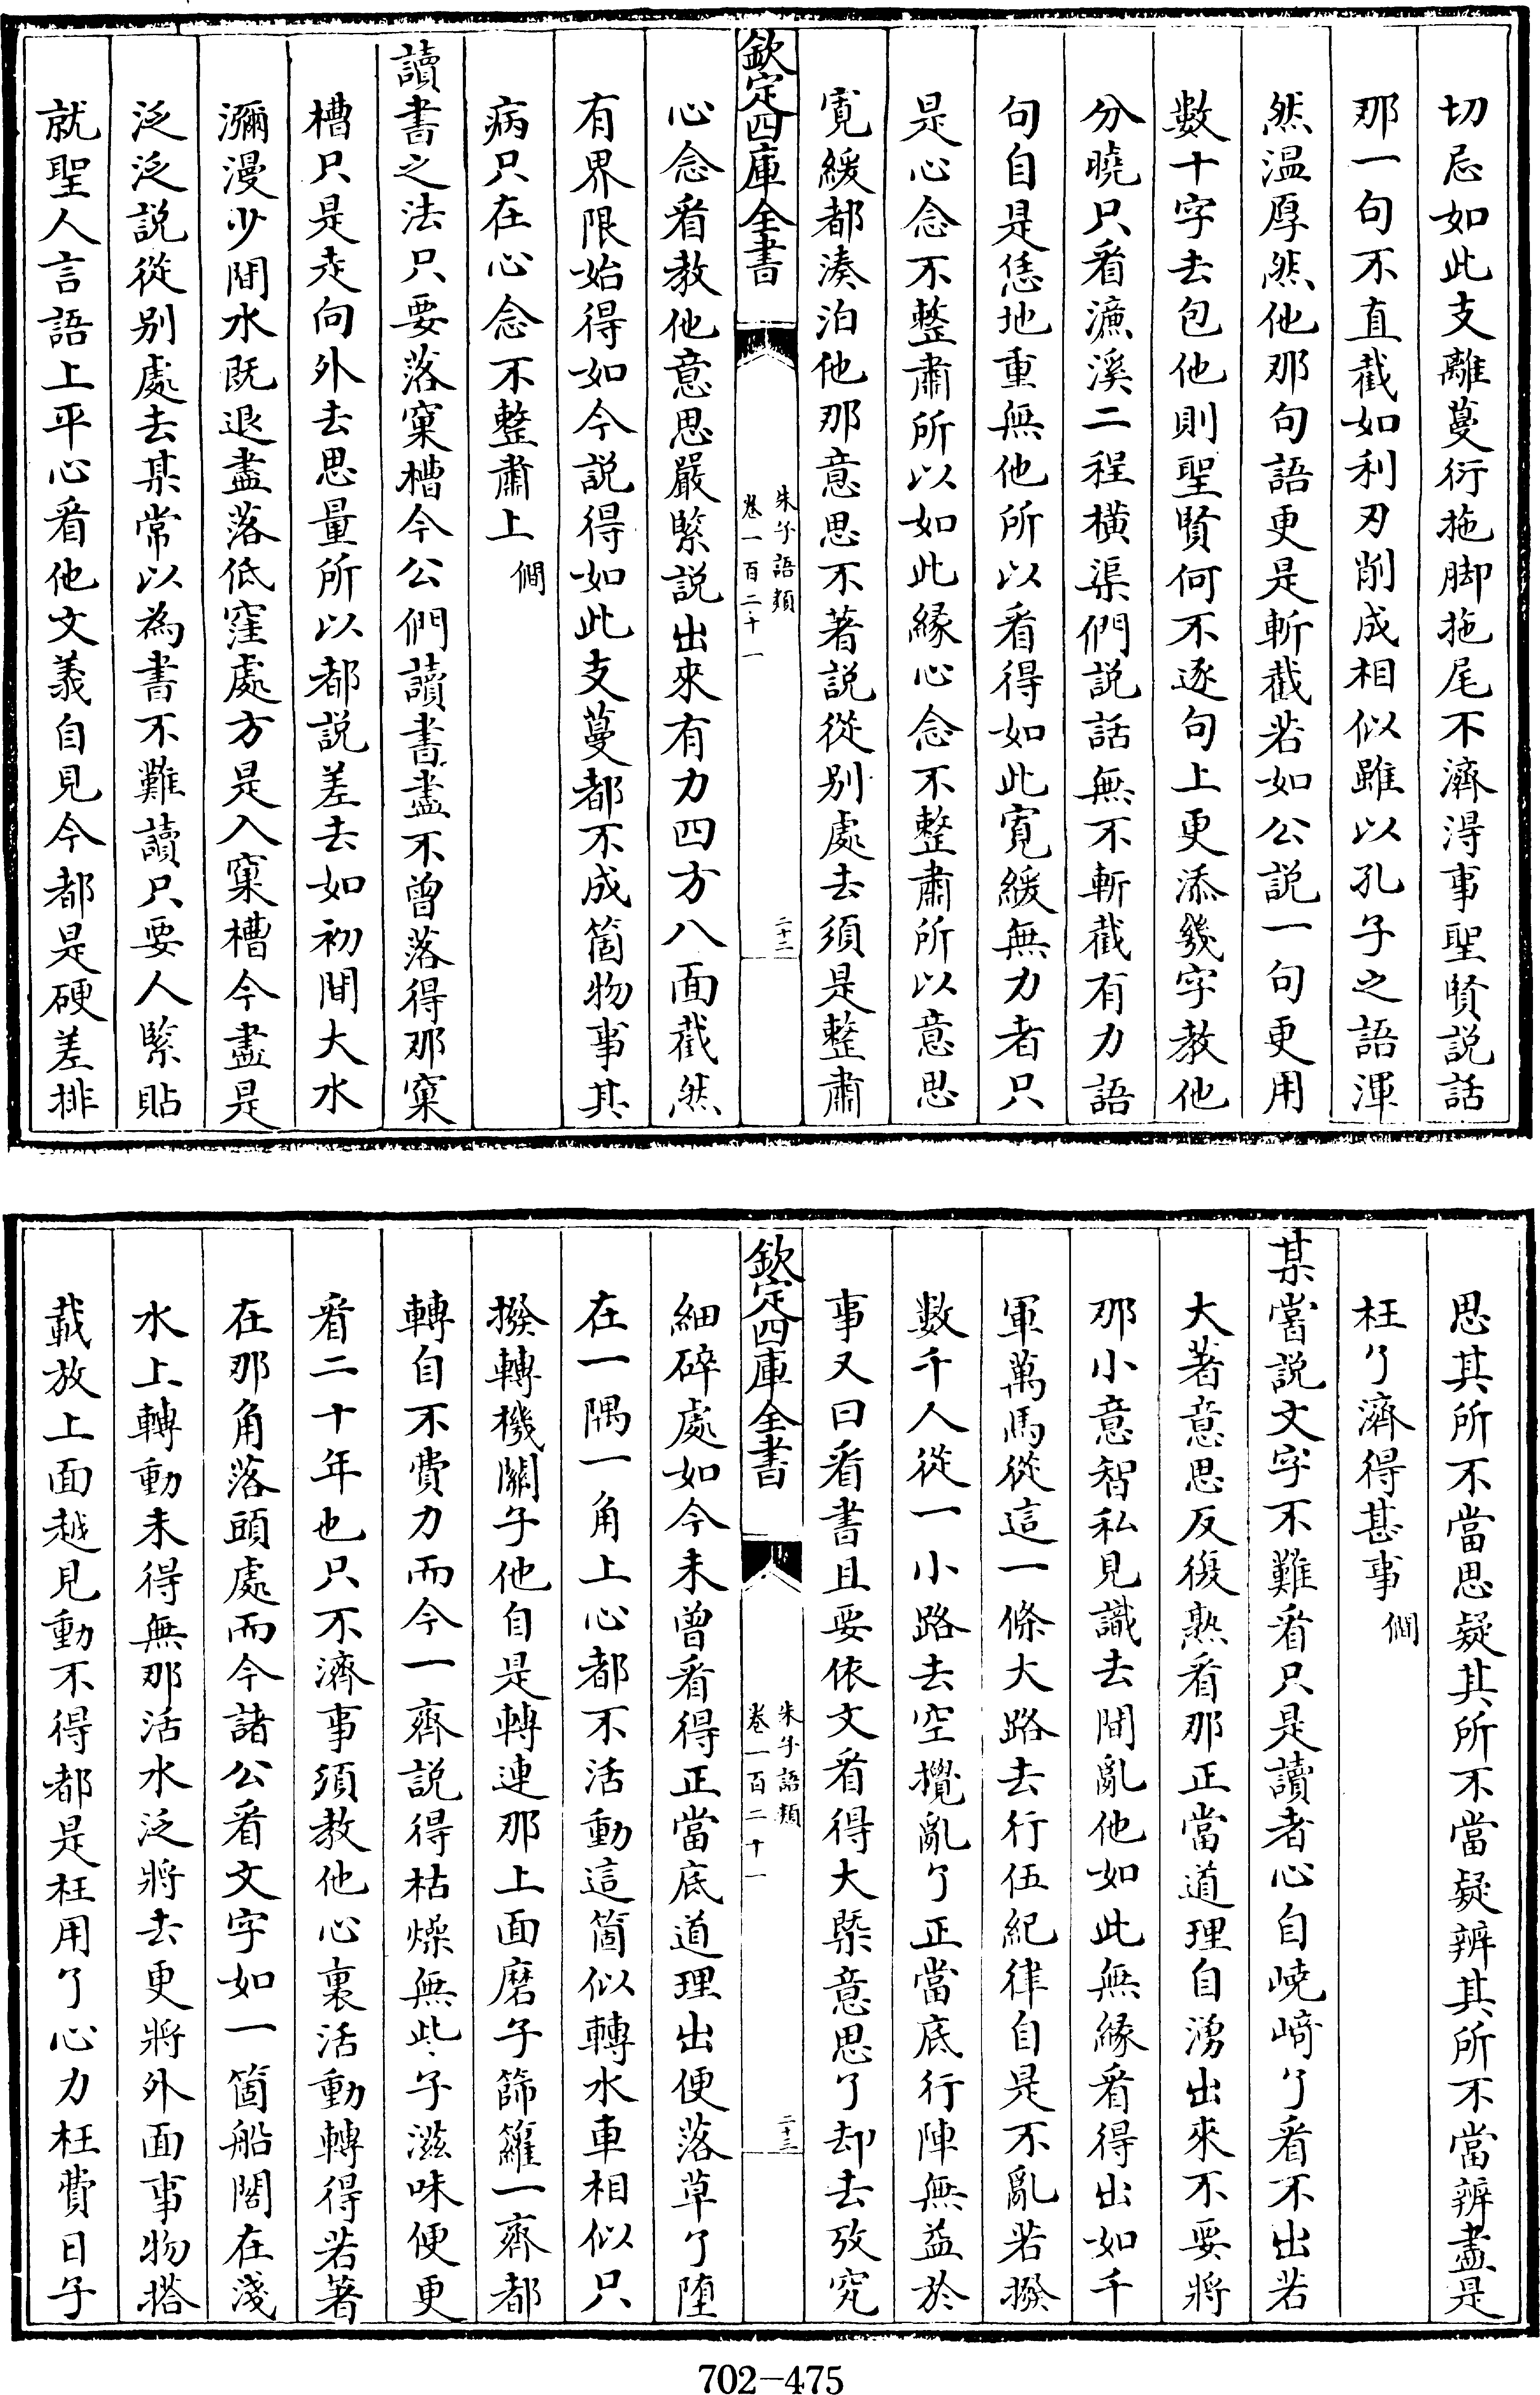 切忌如此支離蔓衍拖脚拖尾不濟得事聖賢説話
那一句不直截如利刃削成相似雖以孔子之語渾
然温厚然他那句語更是斬截若如公説一句更用
數十字去包他則聖賢何不逐句上更添幾字教他
分曉只看濂溪二程横渠們説話無不斬截有力語
句自是恁地重無他所以看得如此寛緩無力者只
是心念不整肅所以如此縁心念不整肅所以意思
寛緩都湊泊他那意思不著説從别處去須是整肅
欽定四庫全書
朱子語類
卷一百二十一
二十二
心念看教他意思嚴緊説出來有力四方八面截然
有界限始得如今説得如此支蔓都不成箇物事其
病只在心念不整肅上 僩
讀書之法只要落窠槽今公們讀書盡不曾落得那窠
槽只是走向外去思量所以都説差去如初間大水
瀰漫少間水既退盡落低窪處方是入窠槽今盡是
泛泛説從别處去某常以為書不難讀只要人緊貼
就聖人言語上平心看他文義自見今都是硬差排
思其所不當思疑其所不當疑辨其所不當辨盡是
枉了濟得甚事 僩
某嘗説文字不難看只是讀者心自嶢﨑了看不出若
大著意思反復熟看那正當道理自湧出來不要將
那小意智私見識去間亂他如此無縁看得出如千
軍萬馬從這一條大路去行伍紀律自是不亂若撥
數千人從一小路去空攪亂了正當底行陣無益於
事又曰看書且要依文看得大槩意思了却去攷究
欽定四庫全書
朱子語類
卷一百二十一
二十三
細碎處如今未曾看得正當底道理出便落草了堕
在一隅一角上心都不活動這箇似轉水車相似只
撥轉機關子他自是轉連那上面磨子篩籮一齊都
轉自不費力而今一齊説得枯燥無些子滋味便更
看二十年也只不濟事須教他心裏活動轉得若著
在那角落頭處而今諸公看文字如一箇船閣在淺
水上轉動未得無那活水泛將去更將外面事物搭
載放上面越見動不得都是枉用了心力枉費日子
702-475